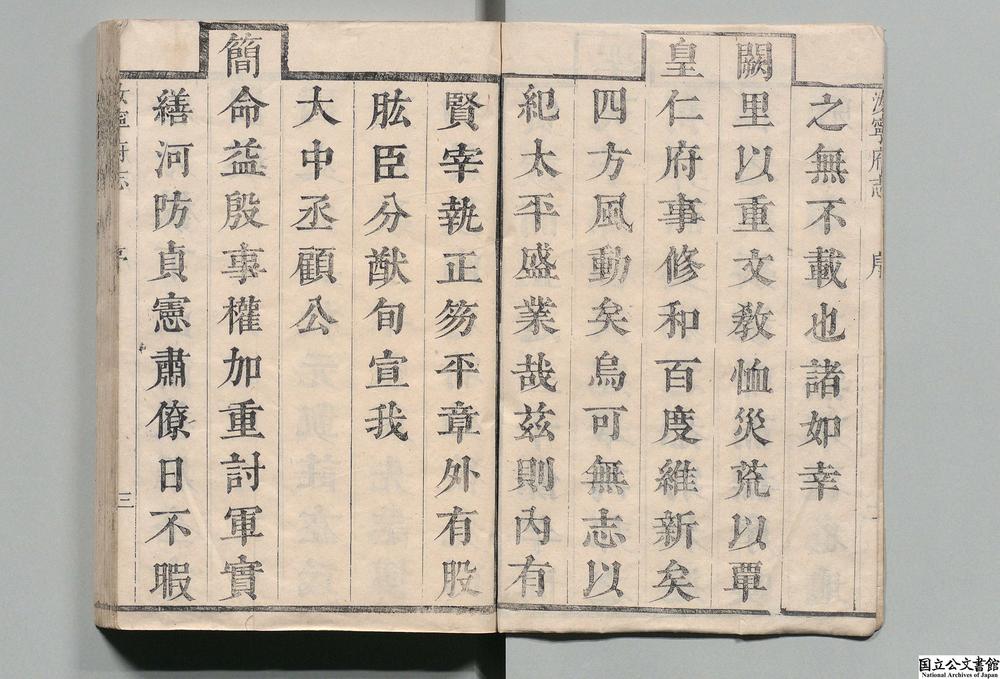 汝寧府志 序
之無不載也諸如幸
闕里以重文教恤災荒以覃
皇仁府事修和百度維新矣
四方風動矣烏可無志以
紀太平盛業哉茲則內有
賢宰執正笏平章外有股
肱臣分猷旬宣我
太中丞顧公
簡命益殷事權加重討軍實
繕河防貞憲肅僚日不暇
汝寧府志 序 三
国立公文書館
National Archives of Japan